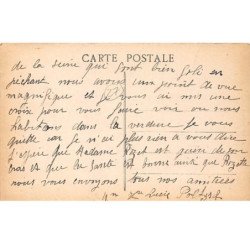 CARTE POSTALE
de la seine qui sont bien joli en
pêchant nous avons un point de vue
magnifique et je vous ai mis une
croix pour vous faire voir ou nous
habitons dans la verdure je vous
quitte car je n'ai plus rien a vous dire
J'espère que Madame est guérie de son
bras et que la Santé est bonne ainsi que
nous vous envoyons tous nos amitiés
Lucie